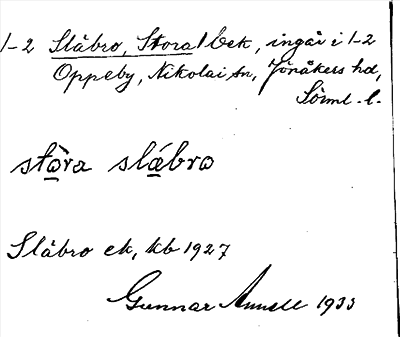 1-2 Slåbro, Stora/bek, ingår i 1-2
Oppeby, Nikolai sn, Jönåkers hd,
Söml. l.
stòra slábro
Slåbro ek, kb 1927
Gunnar 1933